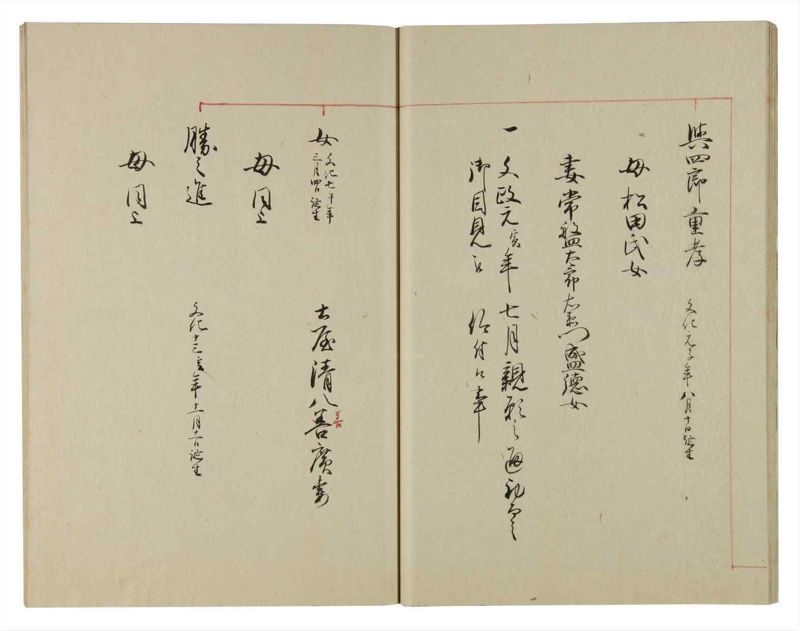 與四郎重孝 文化元子年八月十日誕生
母松田氏女
妻常盤太郎左衛門盛徳女
一文政元寅年七月親願之通初而
御目見被 仰付候事
女 文化七午年
三月四日誕生
土屋清八善廣妻
善
母同上
勝之進 文化十二亥年十一月六日誕生
母同上